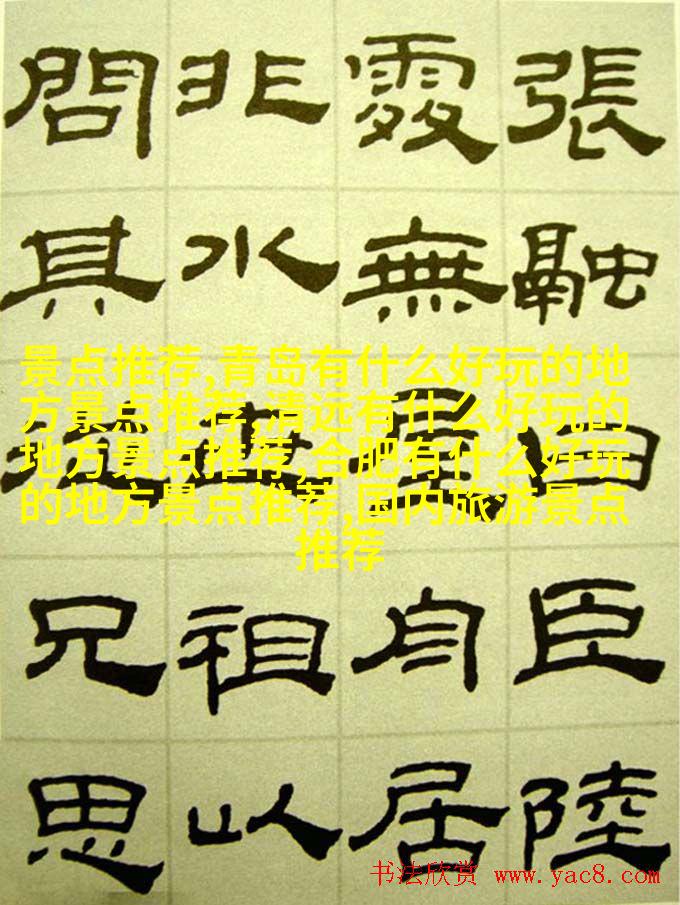 張融白臣陸
處無屋舟居
非水世祖以
問其兄思
景点推荐,青岛有什么好玩的地
方景点推荐,清远有什么好玩的
地方景点推荐,合肥有什么好玩
的地方景点推荐,国内旅游景点
推荐
书法欣赏 www.yac8.com